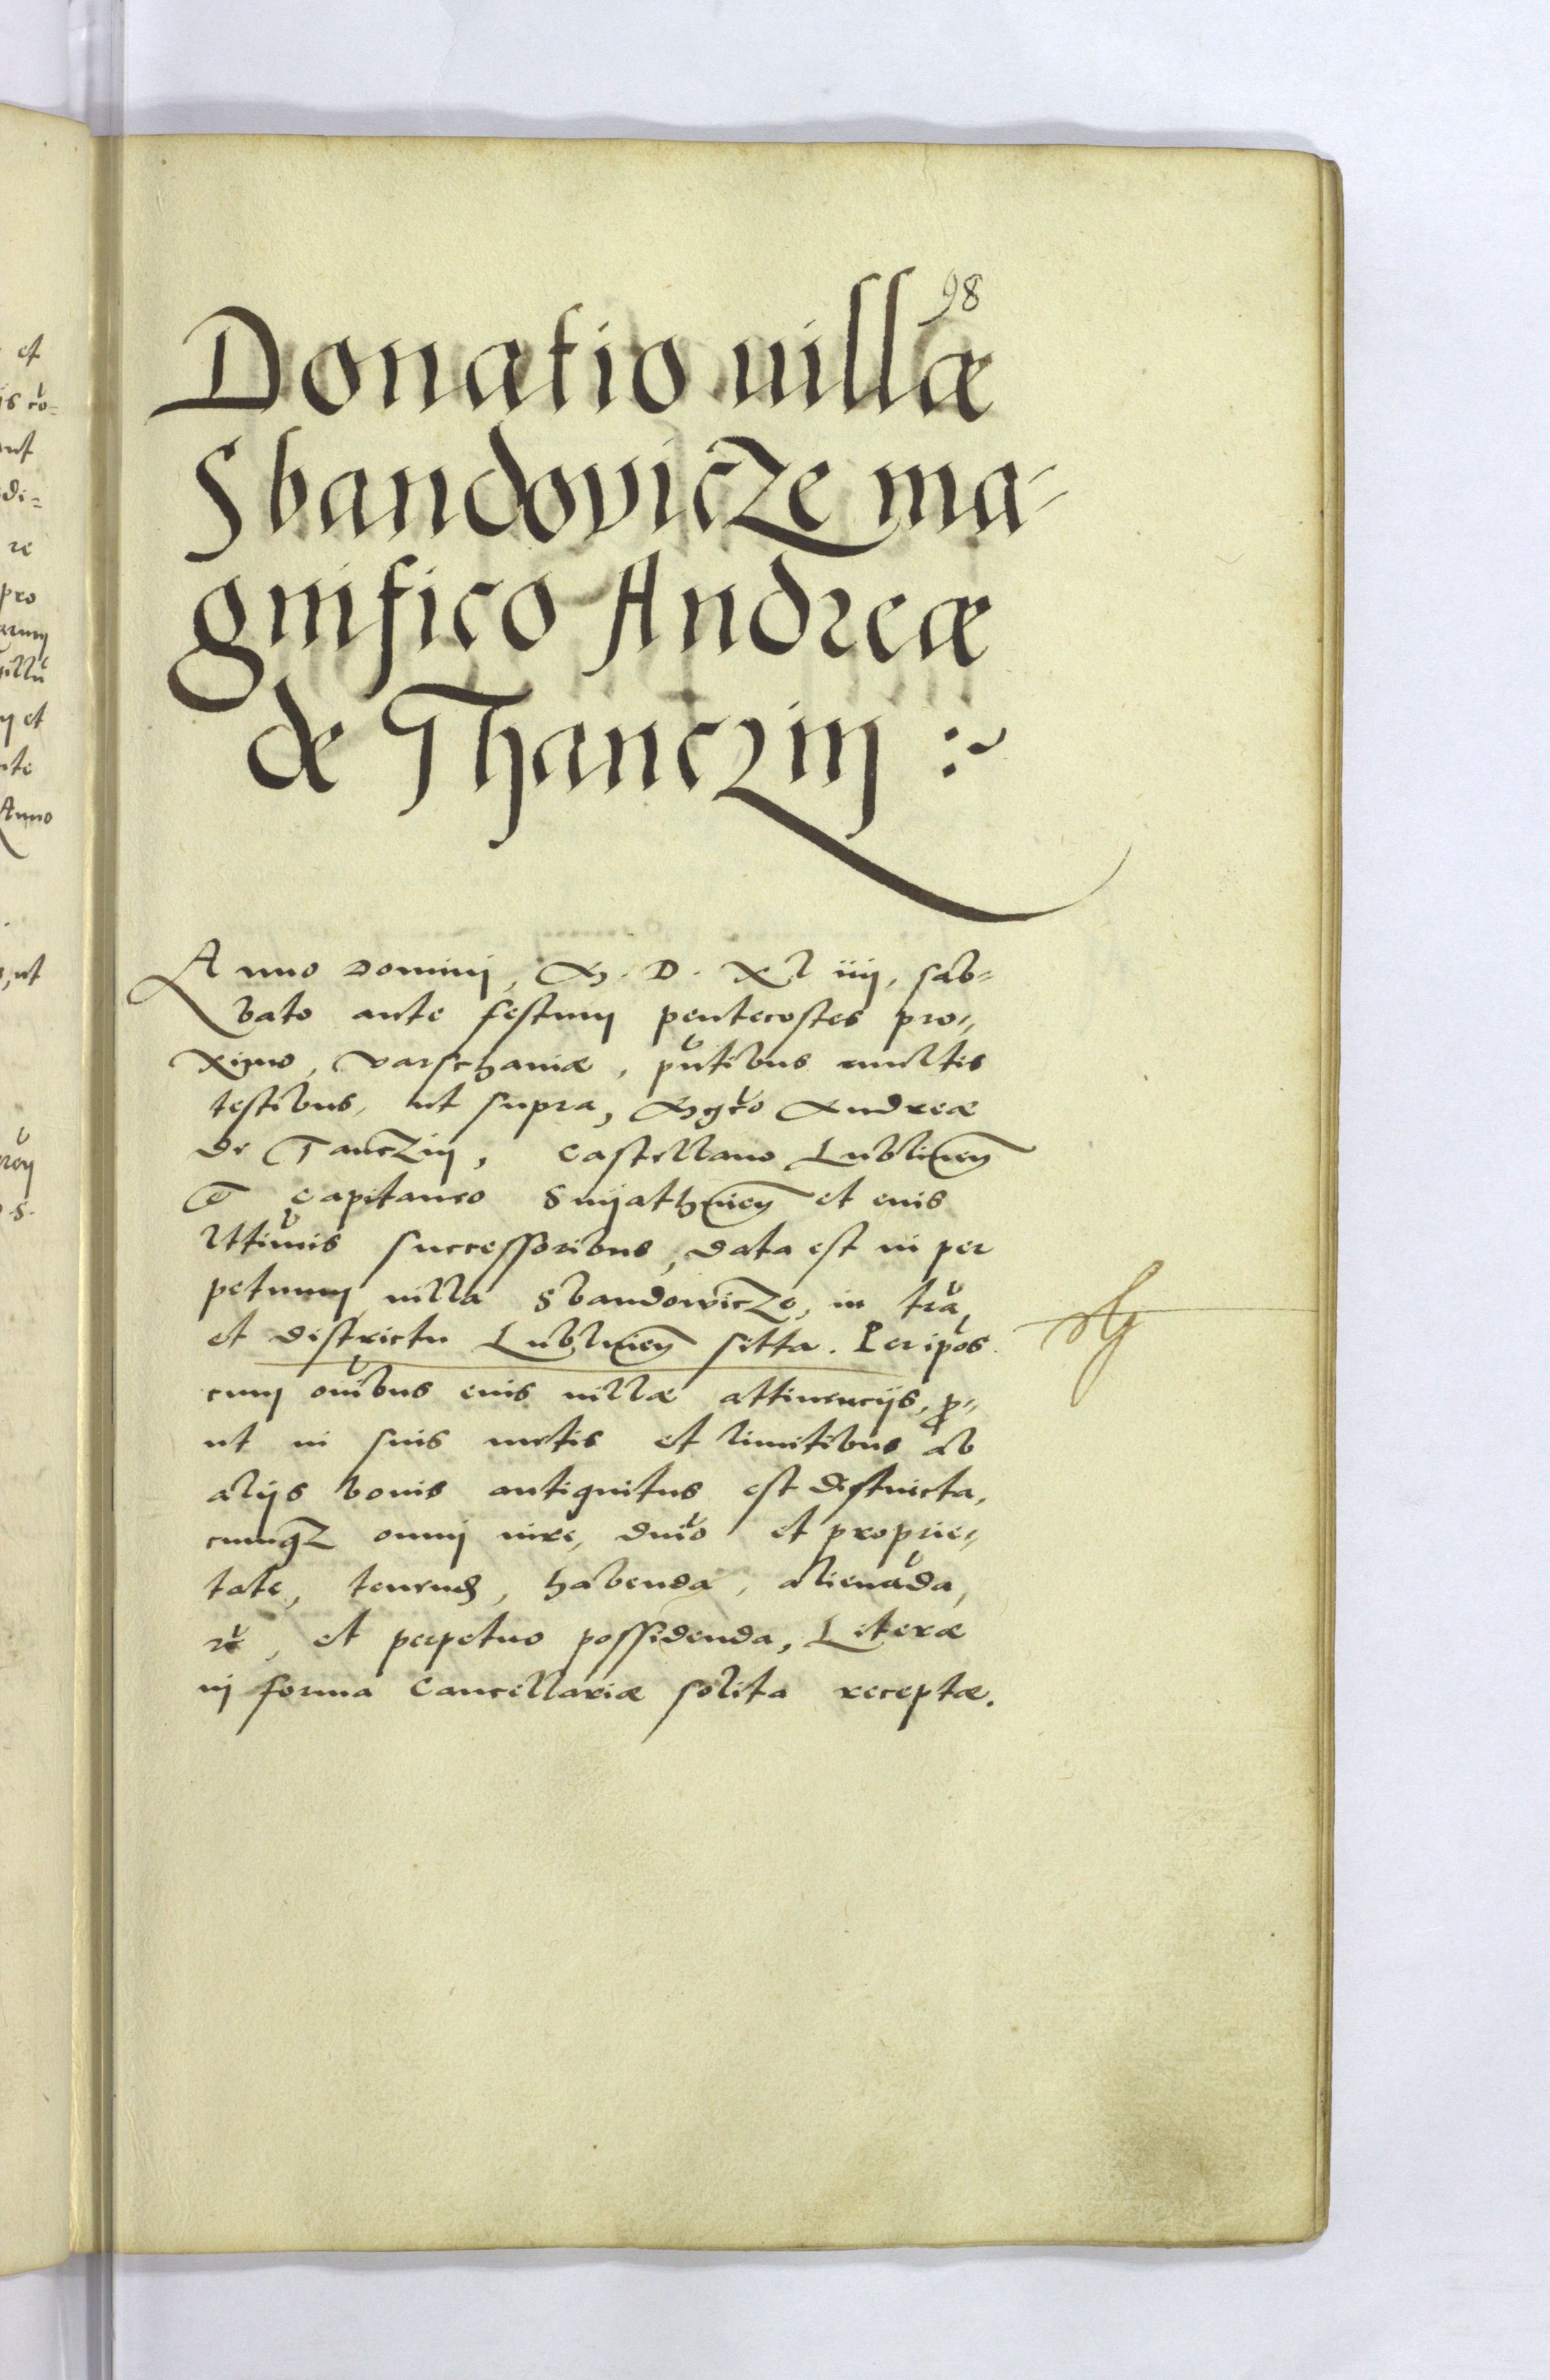 98
Donatio uillæ
Sbandovicze ma-
gnifico Andreæ
de Thanczin :~
Anno Domini, M. D. XL iiij, sab=
bato ante festum pentecostes pro=
ximo, Varschauiæ, pntibus multis
testibus, ut supra, Mgco Andreæ
de Tanczin, Castellano Lublinen
et Capitaneo Snyathinen et eius
lttimis successoribus, data est in per
petuum uilla Sbandowicze, in tra,
et districtu Lublinen sitta. Per ipos
cum oibus eius uillæ attinencijs, pro=
ut in suis metis et limitibus ab
alijs bonis antiquitus est distincta,
cumqz omni iure, dnio et proprie=
tate, tenend, habenda, alienada,
rc, et perpetuo possidenda, Literæ
in forma Cancellariæ solita receptæ.